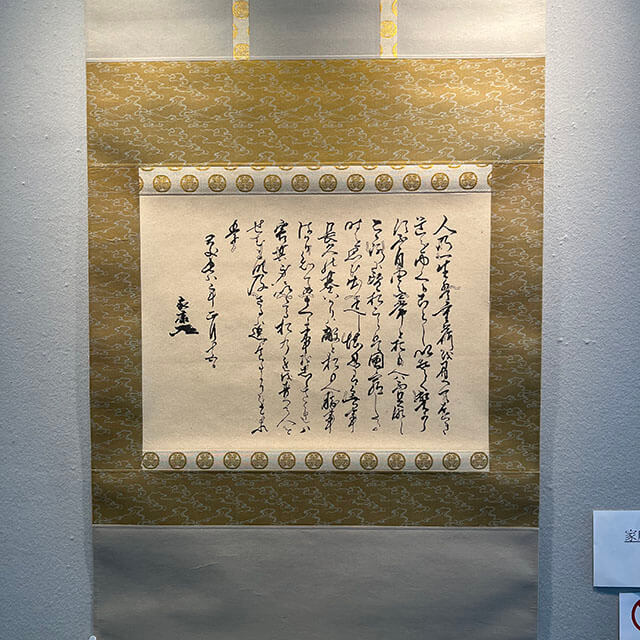 人乃一生は重荷を負て遠き
道をゆくかことしいそくへから
す不自由を常とおもへは不足なし
こゝろに望おこらは困窮したる
時を思ひ出すへし堪忍は無事
長久の基いかりは敵とおもへ勝事
はかり知てまくる事をしらされは
害其身にいたるおのれを責て人を
せむるな及はさるは過たるよりまされ
り
慶長八年正月十五日
家康
家